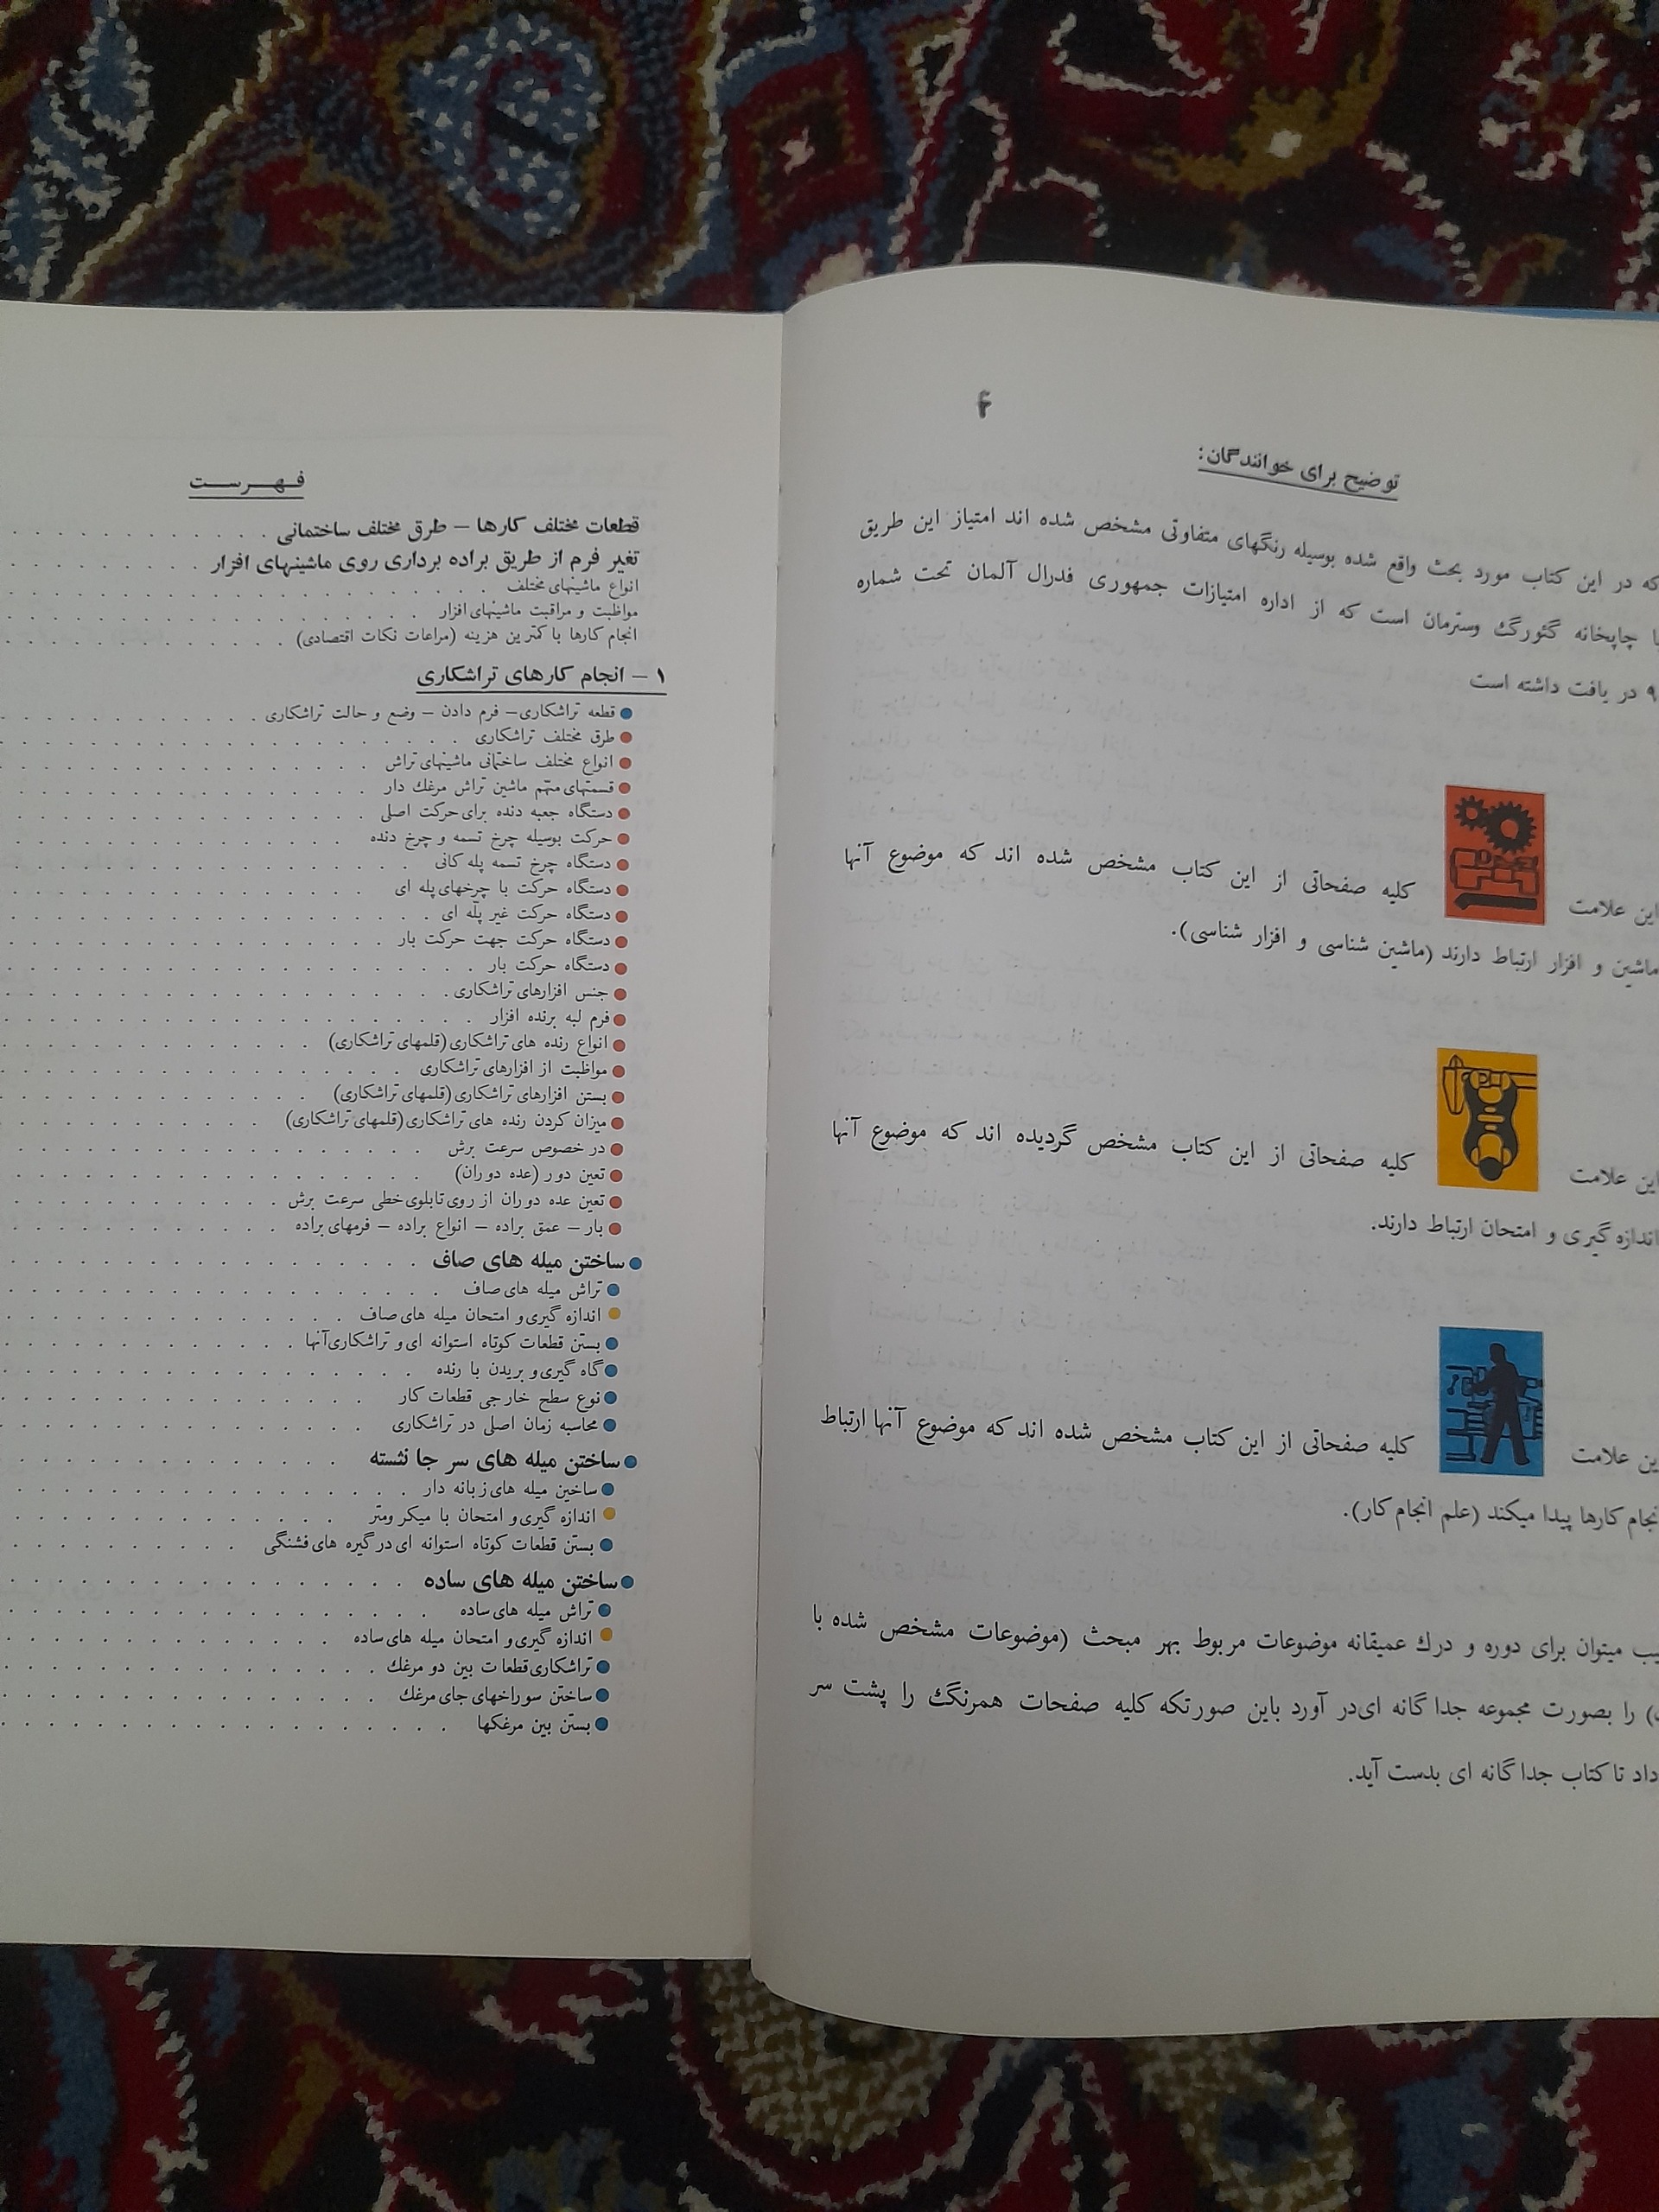 ۴
توضیح برای خوانندگان:
که در این کتاب مورد بحث واقع شده بوسیله رنگهای متفاوتی مشخص شده اند امتیاز این طریق
چاپخانه گئورگ وسترمان است که از اداره امتیازات جمهوری فدرال آلمان تحت شماره
۹ در یافت داشته است
این علامت کلیه صفحاتی از این کتاب مشخص شده اند که موضوع آنها
ماشین و افزار ارتباط دارند (ماشین شناسی و افزار شناسی).
این علامت کلیه صفحاتی از این کتاب مشخص گردیده اند که موضوع آنها
اندازه گیری و امتحان ارتباط دارند.
ین علامت کلیه صفحاتی از این کتاب مشخص شده اند که موضوع آنها ارتباط
نجام کارها پیدا میکند (علم انجام کار).
یب میتوان برای دوره و درك عمیقانه موضوعات مربوط بهر مبحث (موضوعات مشخص شده با
) را بصورت مجموعه جداگانه ای در آورد باین صورتکه کلیه صفحات همرنگ را پشت سر
داد تا کتاب جداگانه ای بدست آید.
فهرست
قطعات مختلف کارها – طرق مختلف ساختمانی
تغیر فرم از طریق براده برداری روی ماشینهای افزار
انواع ماشینهای مختلف
مواظبت و مراقبت ماشینهای افزار
انجام کارها با کمترین هزینه (مراعات نکات اقتصادی)
۱ – انجام کارهای تراشکاری
قطعه تراشکاری – فرم دادن – وضع و حالت تراشکاری
طرق مختلف تراشکاری
انواع مختلف ساختمانی ماشینهای تراش
قسمتهای مهم ماشین تراش مرغك دار
دستگاه جعبه دنده برای حرکت اصلی
حرکت بوسیله چرخ تسمه و چرخ دنده
دستگاه چرخ تسمه پله کانی
دستگاه حرکت با چرخهای پله ای
دستگاه حرکت غیر پله ای
دستگاه حرکت جهت حرکت بار
دستگاه حرکت بار
جنس افزارهای تراشکاری
فرم لبه برنده افزار
انواع رنده های تراشکاری (قلمهای تراشکاری)
مواظبت از افزارهای تراشکاری
بستن افزارهای تراشکاری (قلمهای تراشکاری)
میزان کردن رنده های تراشکاری (قلمهای تراشکاری)
در خصوص سرعت برش
تعین دور (عده دوران)
تعین عده دوران از روی تابلوی خطی سرعت برش
بار – عمق براده – انواع براده – فرمهای براده
ساختن میله های صاف
تراش میله های صاف
اندازه گیری و امتحان میله های صاف
بستن قطعات کوتاه استوانه ای و تراشکاری آنها
گاه گیری و بریدن با رنده
نوع سطح خارجی قطعات کار
محاسبه زمان اصلی در تراشکاری
ساختن میله های سر جا نشسته
ساخین میله های زبانه دار
اندازه گیری و امتحان با میکر ومتر
بستن قطعات کوتاه استوانه ای در گیره های فشنگی
ساختن میله های ساده
تراش میله های ساده
اندازه گیری و امتحان میله های ساده
تراشکاری قطعات بین دو مرغك
ساختن سوراخهای جای مرغك
بستن بین مرغکها